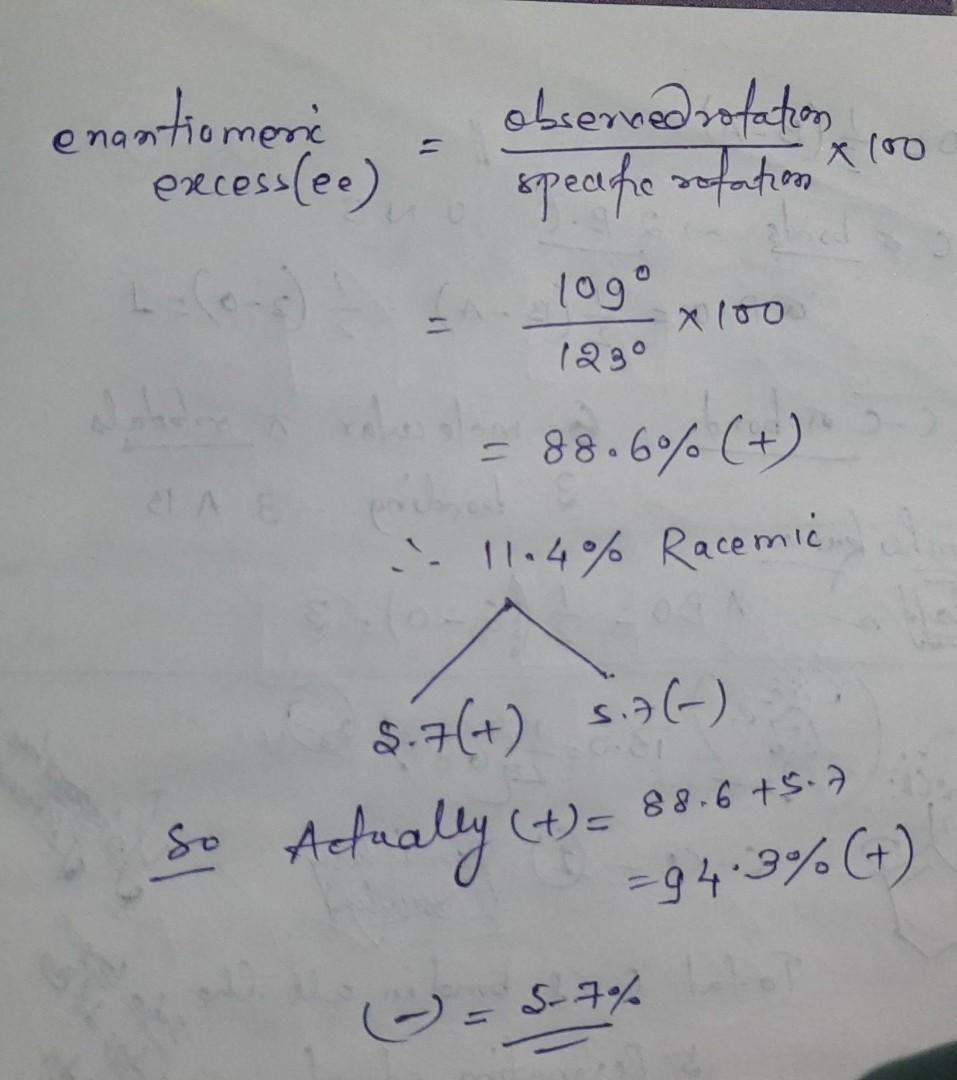 enantiomeric
excess(ee) = observed rotation / specific rotation × 100
= 109° / 123° × 100
= 88.6% (+)
∴ 11.4% Racemic
5.7(+) 5.7(-)
So Actually (+) = 88.6 + 5.7
= 94.3% (+)
(-) = 5.7%